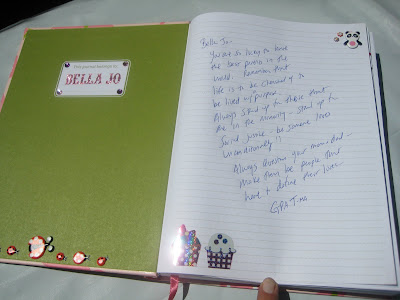 This journal belongs to
BELLA JO
Bella Jo -
You are so lucky to have
the best parents in the
world. Remember that
life is to be cherished &
be lived w/ purpose.
Always stand up for those that
are in the minority - stand up for
Social justice - be someone loves
unconditionally!!
Always question your mom & dad -
make them be people that
have & define their lives